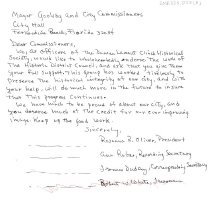 Mayor Goelz and City Commissioners
City Hall
Fernandina Beach, Florida 32034
Dear Commissioners,
We, as officers of the Duncan Lamont Clinch Historical
Society, would like to wholeheartedly endorse the work of
the Historic District Council, and ask that you give them
your full support. This group has worked tirelessly to
preserve the historical integrity of our city, and with
your help, will do much more in the future to insure
that this program continues.
We have much to be proud of about our city, and
you deserve much of the credit for our ever improving
image. Keep up the good work.
Sincerely,
B. Oliver, President
Recording Secretary
Corresponding Secretary